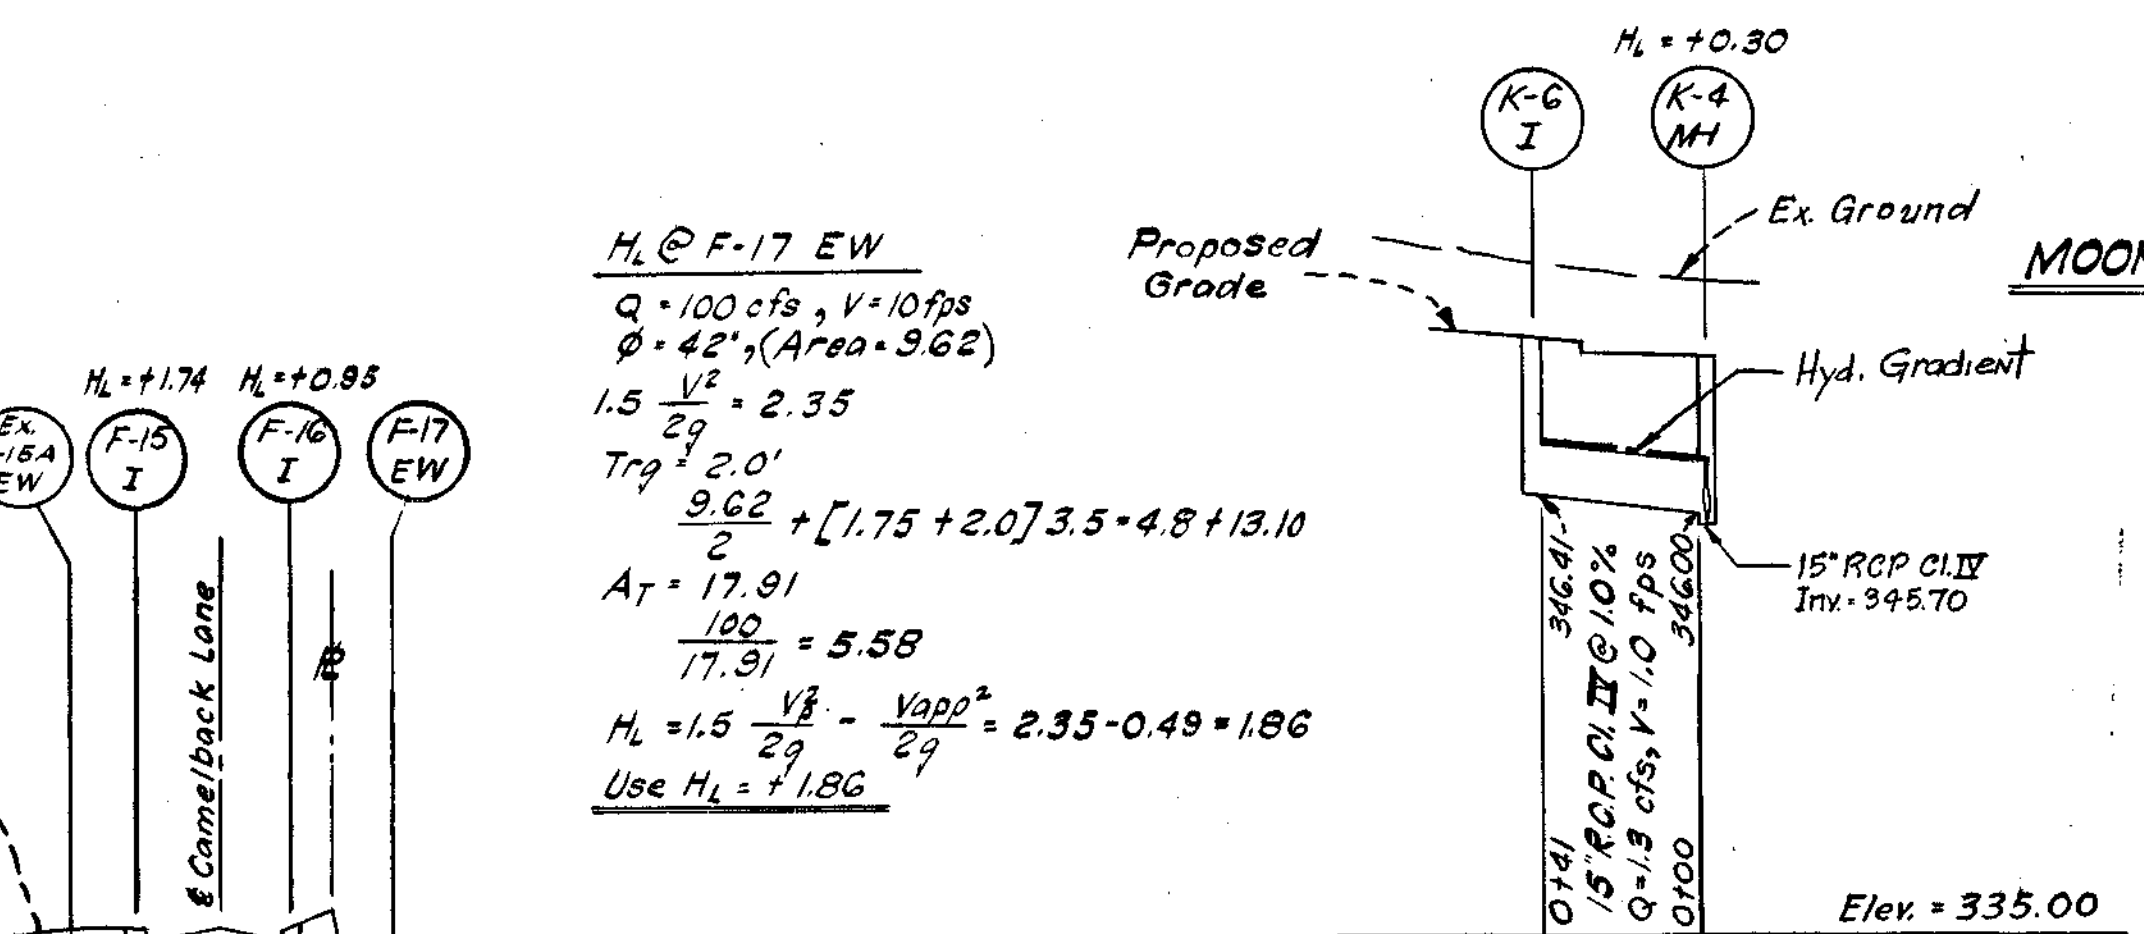 H_L = +1.74
H_L = +0.95
Ex.
-15A
EW
F-15
I
F-16
I
F-17
EW
℄ Camelback Lane
H_L @ F-17 EW
Q = 100 cfs, V = 10 fps
Ø = 42", (Area = 9.62)
1.5 V²/2g = 2.35
Trg = 2.0'
9.62/2 + [1.75 + 2.0] 3.5 = 4.8 + 13.10
A_T = 17.91
100/17.91 = 5.58
H_L = 1.5 V²/2g - Vapp²/2g = 2.35 - 0.49 = 1.86
Use H_L = + 1.86
H_L = +0.30
K-6
I
K-4
MH
Proposed
Grade
Ex. Ground
MOON
Hyd. Gradient
15" RCP Cl. IV
Inv. = 345.70
346.41
0+41
15" R.C.P. Cl. IV @ 1.0%
Q = 1.3 cfs, V = 1.0 fps
346.00
0+00
Elev. = 335.00